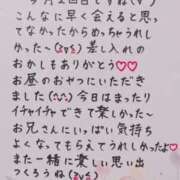 今月2回目ですね(^^)
こんなに早く会えると思っ
てなかったからめっちゃうれし
かった〜(≧▽≦)差し入れの
おかしもありがとう♡♡
お昼のおやつにいただき
ました(^^)今日はまったり
イチャイチャできて楽しかった〜
お兄さんにいっぱい気持ち
よくなってもらえてうれしかったよ♡
また一緒に楽しい思い出
つくろうね(≧▽≦)